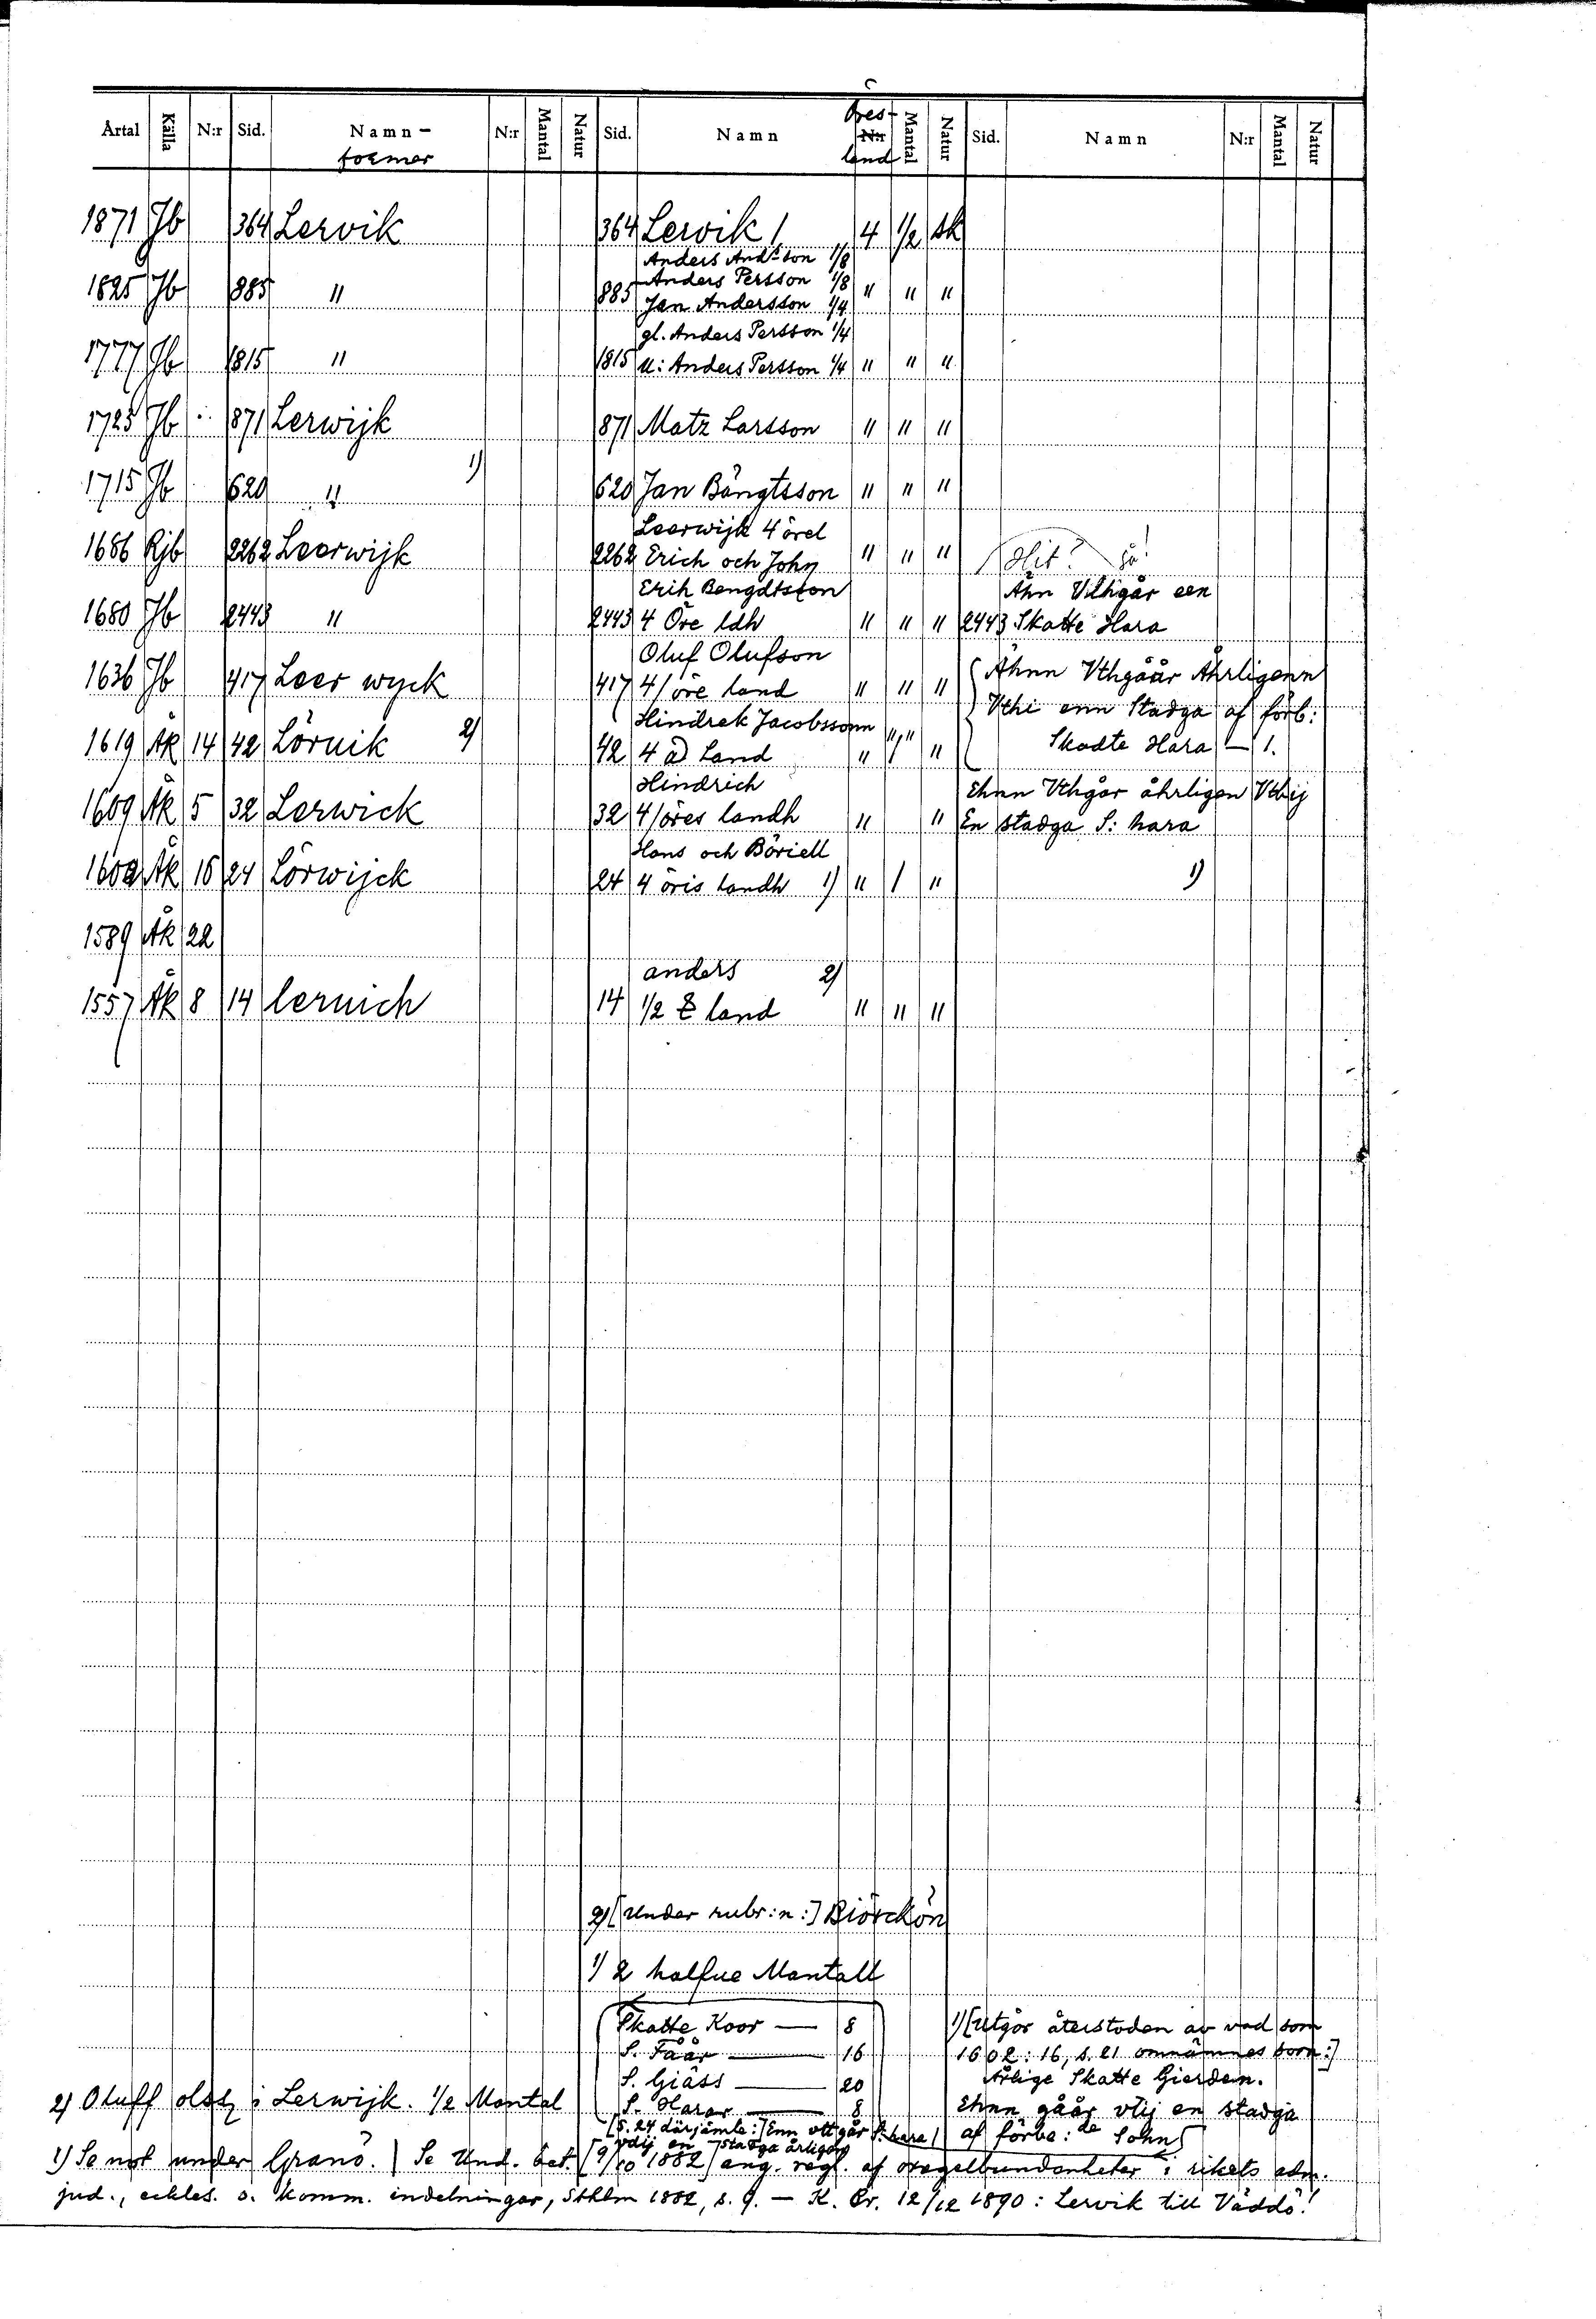 Årtal Källa N:r Sid. Namn- former N:r Mantal Natur Sid. Namn Öres- N:r land Mantal Natur Sid. Namn N:r Mantal Natur
1871 Jb 364 Lervik 364 Lervik 1 4 1/2 sk
Anders And:sson 1/8
Anders Persson 1/8
1825 Jb 885 " 885 Jan Andersson 1/4 " " "
gl. Anders Persson 1/4
1777 Jb 1815 " 1815 u: Anders Persson 1/4 " " "
1725 Jb 871 Lerwijk 871 Matz Larsson " " "
1715 Jb 620 " 1) 620 Jan Bängtsson " " "
Leerwijk 4 örel
1686 Rjb 2262 Leerwijk 2262 Erich och John " " " Hit? ja!
Erik Bengdtsson Ähn Vthgår een
1680 Jb 2443 " 2443 4 Öre ldh " " " 2443 Skatte Hara
Oluf Olufson
1636 Jb 417 Leer wyck 417 4/öre land " " " Ähnn Vthgåår Åhrligenn
Hindrek Jacobssonn " " Vthi enn Stadga af förb:
1619 Äk 14 42 Löruik 2) 42 4 ø Land " 1 " Skadte Hara — 1.
Hindrich Ehnn Vthgår åhrligen Vthij
1609 Äk 5 32 Lerwick 32 4/öres landh " " En stadga S: hara
Hans och Böriell
1602 Äk 16 24 Lörwijck 24 4 öris landh 1) " 1 " 1)
1589 Äk 22
anders 2)
1557 Äk 8 14 leruich 14 1/2 land " " "
2) [Under rubr:n:] Biörckön
1) 2 halfue Mantall
Skatte Koor — 8 1) [Utgör återstoden av vad som
S. Fåår — 16 1602: 16, s. 21 omnämnes som:]
S. Giäss — 20 Årlige Skatte Gierden.
2) Oluff olss i Lerwijk. 1/2 Mantal S. Harar — 8 Ehnn gåår vtij en stadga
[S. 24 därjämte:] Enn vttgår S: hara af förbe:de Sohn
vdij en stadga årligen
1) Se not under Granö. Se Und. bet. [9/10 1882] ang. regl. af oregelbundenheter i rikets adm.
jud., eckles. o. komm. indelningar, Sthlm 1882, s. 9. — K. Br. 12/12 1890: Lervik till Väddö!